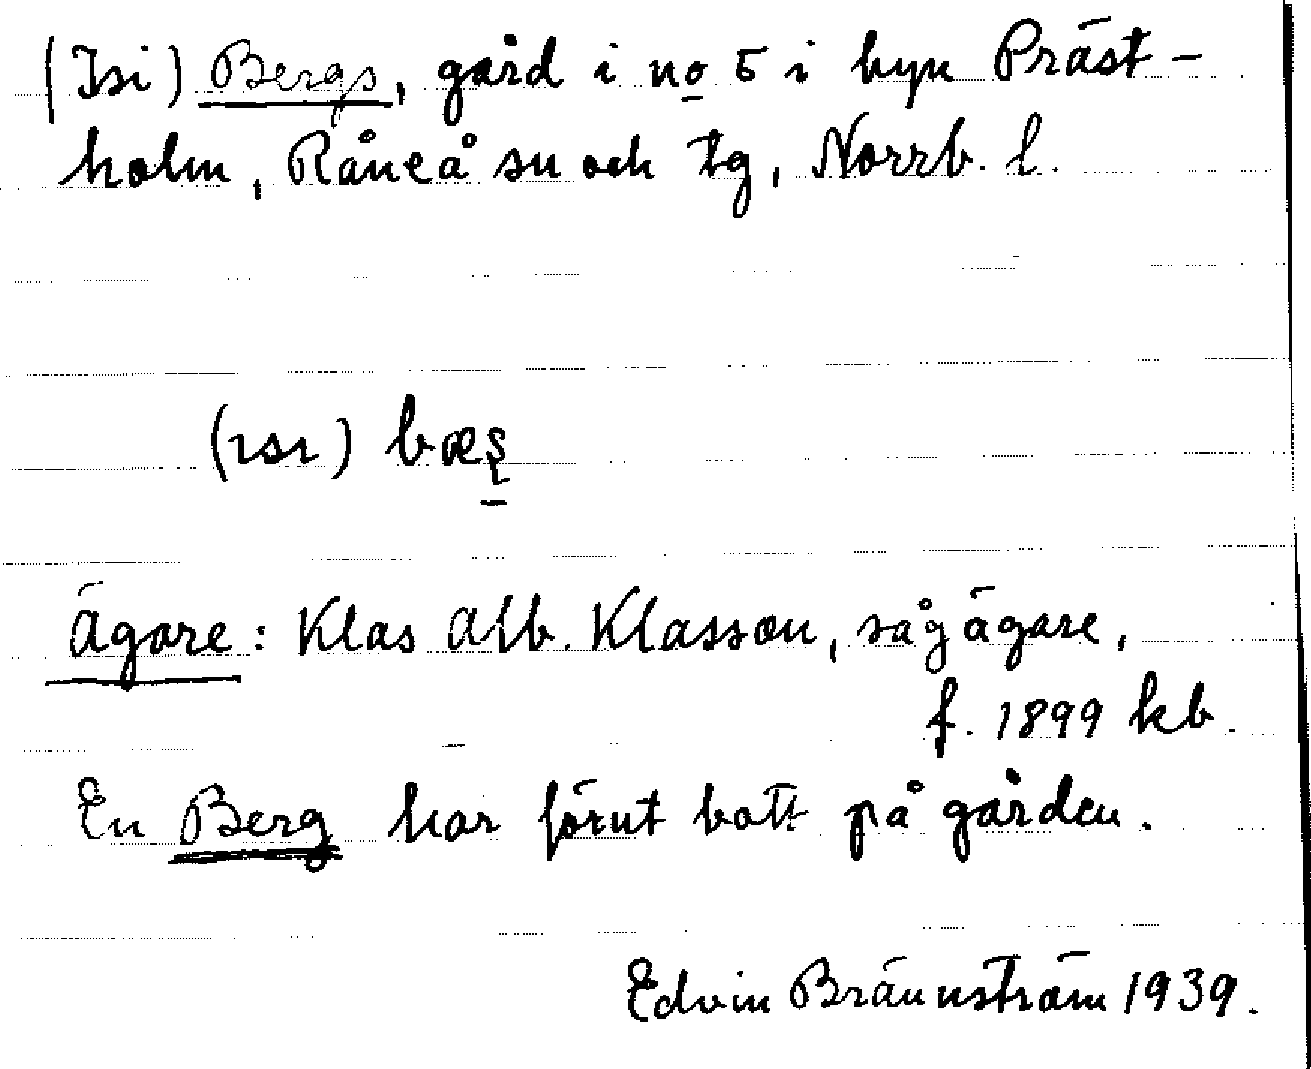 (Isi) Bergs, gård i no 5 i byn Präst-
holm, Råneå sn och tg, Norrb. l.
(ɪsɪ) bæʂ
Ägare: Klas Alb. Klasson, sågägare,
f. 1899 kb.
En Berg har förut bott på gården.
Edvin Brännström 1939.